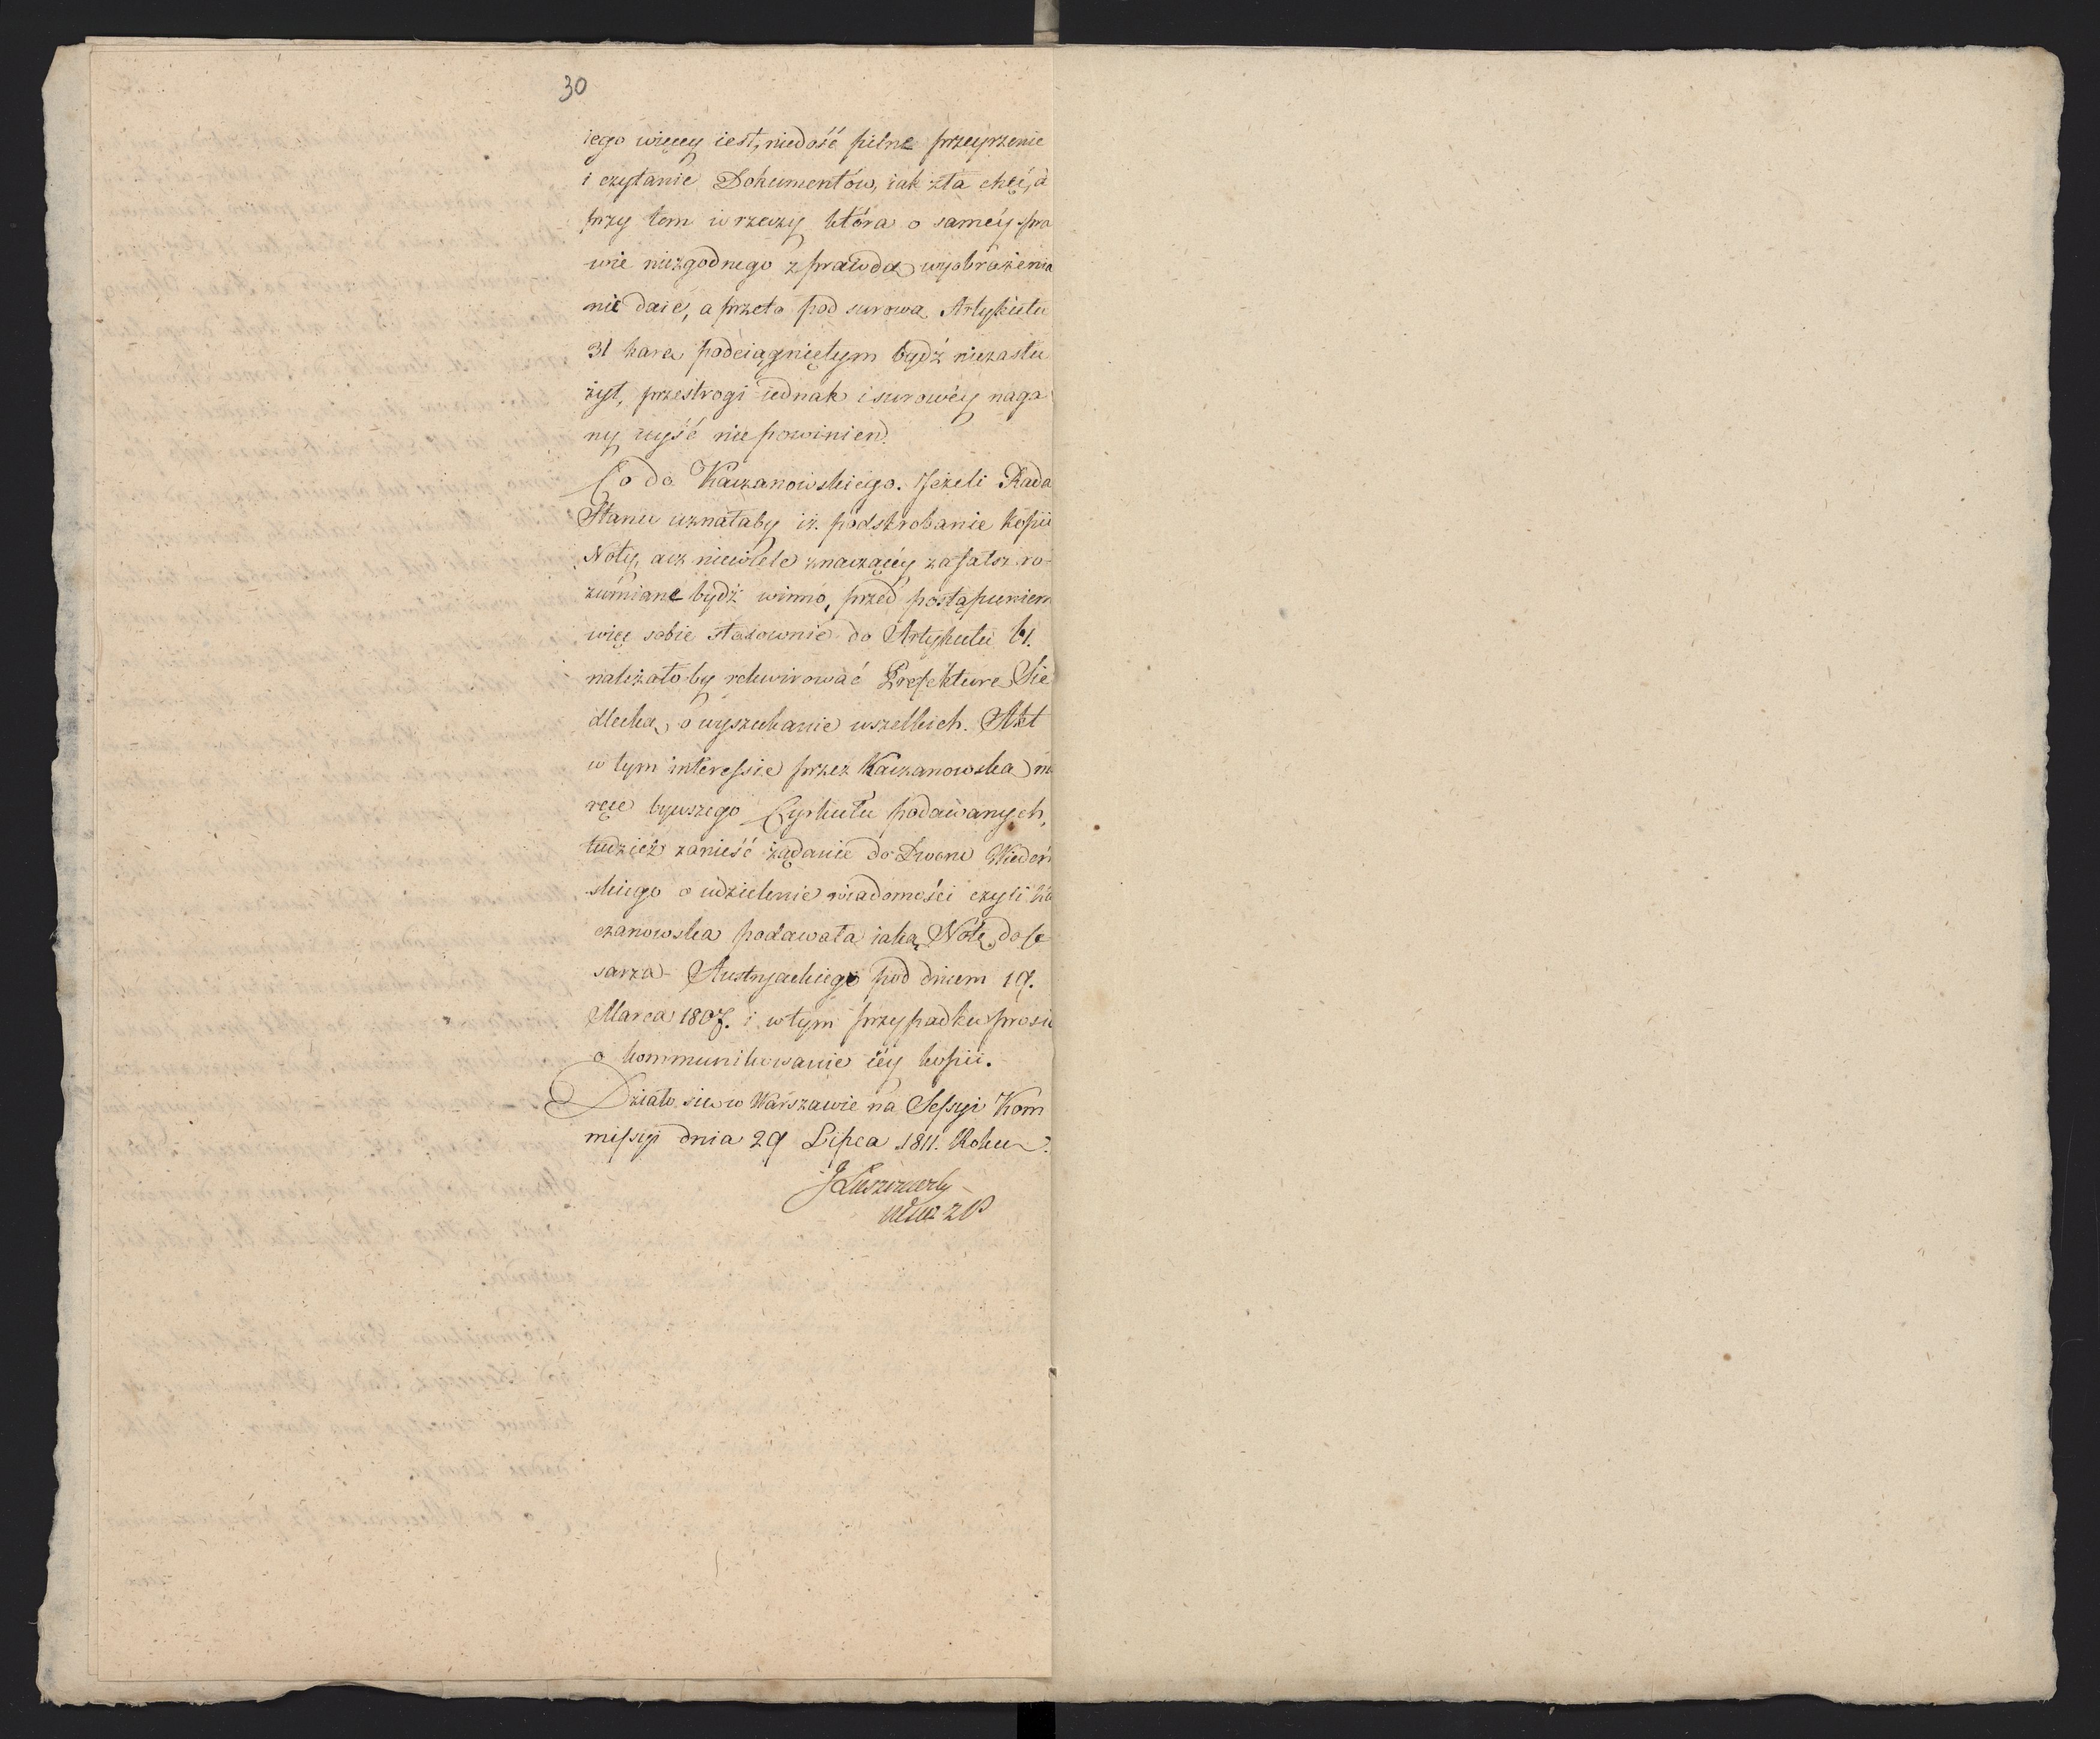 30
iego więcey iest, niedość pilne przeyrzenie
i czytanie Dokumentów, iak zła chęć, a
przy tem w rzeczy która o saméy spra
wie niezgodnego z prawdą wyobrażenia
nie daie, a przeto pod surową Artykułu
31 karę podciągniętym bydź niezasłu
żył, przestrogi iednak i surowéy naga
ny uyść nie powinien.
Co do Kaczanowskiego. Jeżeli Rada
Stanu uznałaby iż podskrobanie kopii
Noty, acz niewiele znaczącéy za fałsz ro-
zumiane bydź winno, przed postąpieniem
więc sobie stosownie do Artykułu 61.
należałoby rekwirować Prefekturę Sie
dlecką, o wyszukanie wszelkich Akt
w tym interessie przez Kaczanowską na
ręce bywszego Cyrkułu podawanych,
tudzież zanieść żądanie do Dworu Wiedeń
skiego o udzielenie wiadomości czyli Ka
czanowska podawała iaką Notę do Ce
sarza Austryackiego pod dniem 19.
Marca 1807. i w tym przypadku prosić
o kommunikowanie iéy kopii.
Działo się w Warszawie na Sessyi Kom
missyi dnia 29 Lipca 1811. Roku